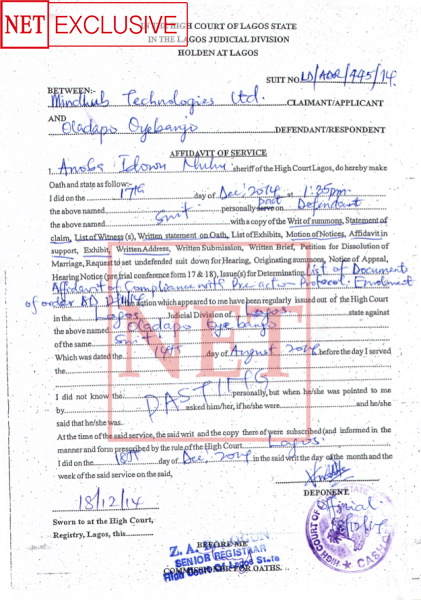 NET EXCLUSIVE
IN THE HIGH COURT OF LAGOS STATE
IN THE LAGOS JUDICIAL DIVISION
HOLDEN AT LAGOS
SUIT NO LD/ADR/445/14
BETWEEN:-
Mindhub Technologies Ltd. CLAIMANT/APPLICANT
AND
Oladapo Oyebanjo DEFENDANT/RESPONDENT
AFFIDAVIT OF SERVICE
I, Idowu sheriff of the High Court Lagos, do hereby make
Oath and state as follow:-
I did on the 17th day of Dec, 2014 at 1:35pm
the above named personally serve on past Defendant
the above named Smt with a copy of the Writ of summons, Statement of
claim, List of Witness (s), Written statement on Oath, List of Exhibits, Motion of Notices, Affidavit in
support, Exhibit, Written Address, Written Submission, Written Brief, Petition for Dissolution of
Marriage, Request to set undefended suit down for Hearing, Originating summons, Notice of Appeal,
Hearing Notice (pre trial conference form 17 & 18), Issue(s) for Determination List of Document
Affidavit of Compliance with Pre-action Protocol. Enrolment
of order the action which appeared to me have been regularly issued out of the High Court
in the Lagos Judicial Division of Lagos state against
the above named Oladapo Oyebanjo
of the same Smt
Which was dated the 14th day of August 2014 before the day I served
the
I did not know the personally, but when he/she was pointed to me
PASTING
by asked him/her, if he/she were and he/she
said that he/she was.
At the time of the said service, the said writ and the copy there of were subscribed (and informed in the
manner and form prescribed by the rule of the High Court Lagos.
I did on the 18th day of Dec, 2014 in the said writ the day of the month and the
week of the said service on the said,
DEPONENT
18/12/14
Sworn to at the High Court,
Registry, Lagos, this
BEFORE ME
Z. A.
SENIOR REGISTRAR
High Court Of Lagos State
COMMISSIONER FOR OATHS.
HIGH COURT OF
18/12/14
NET